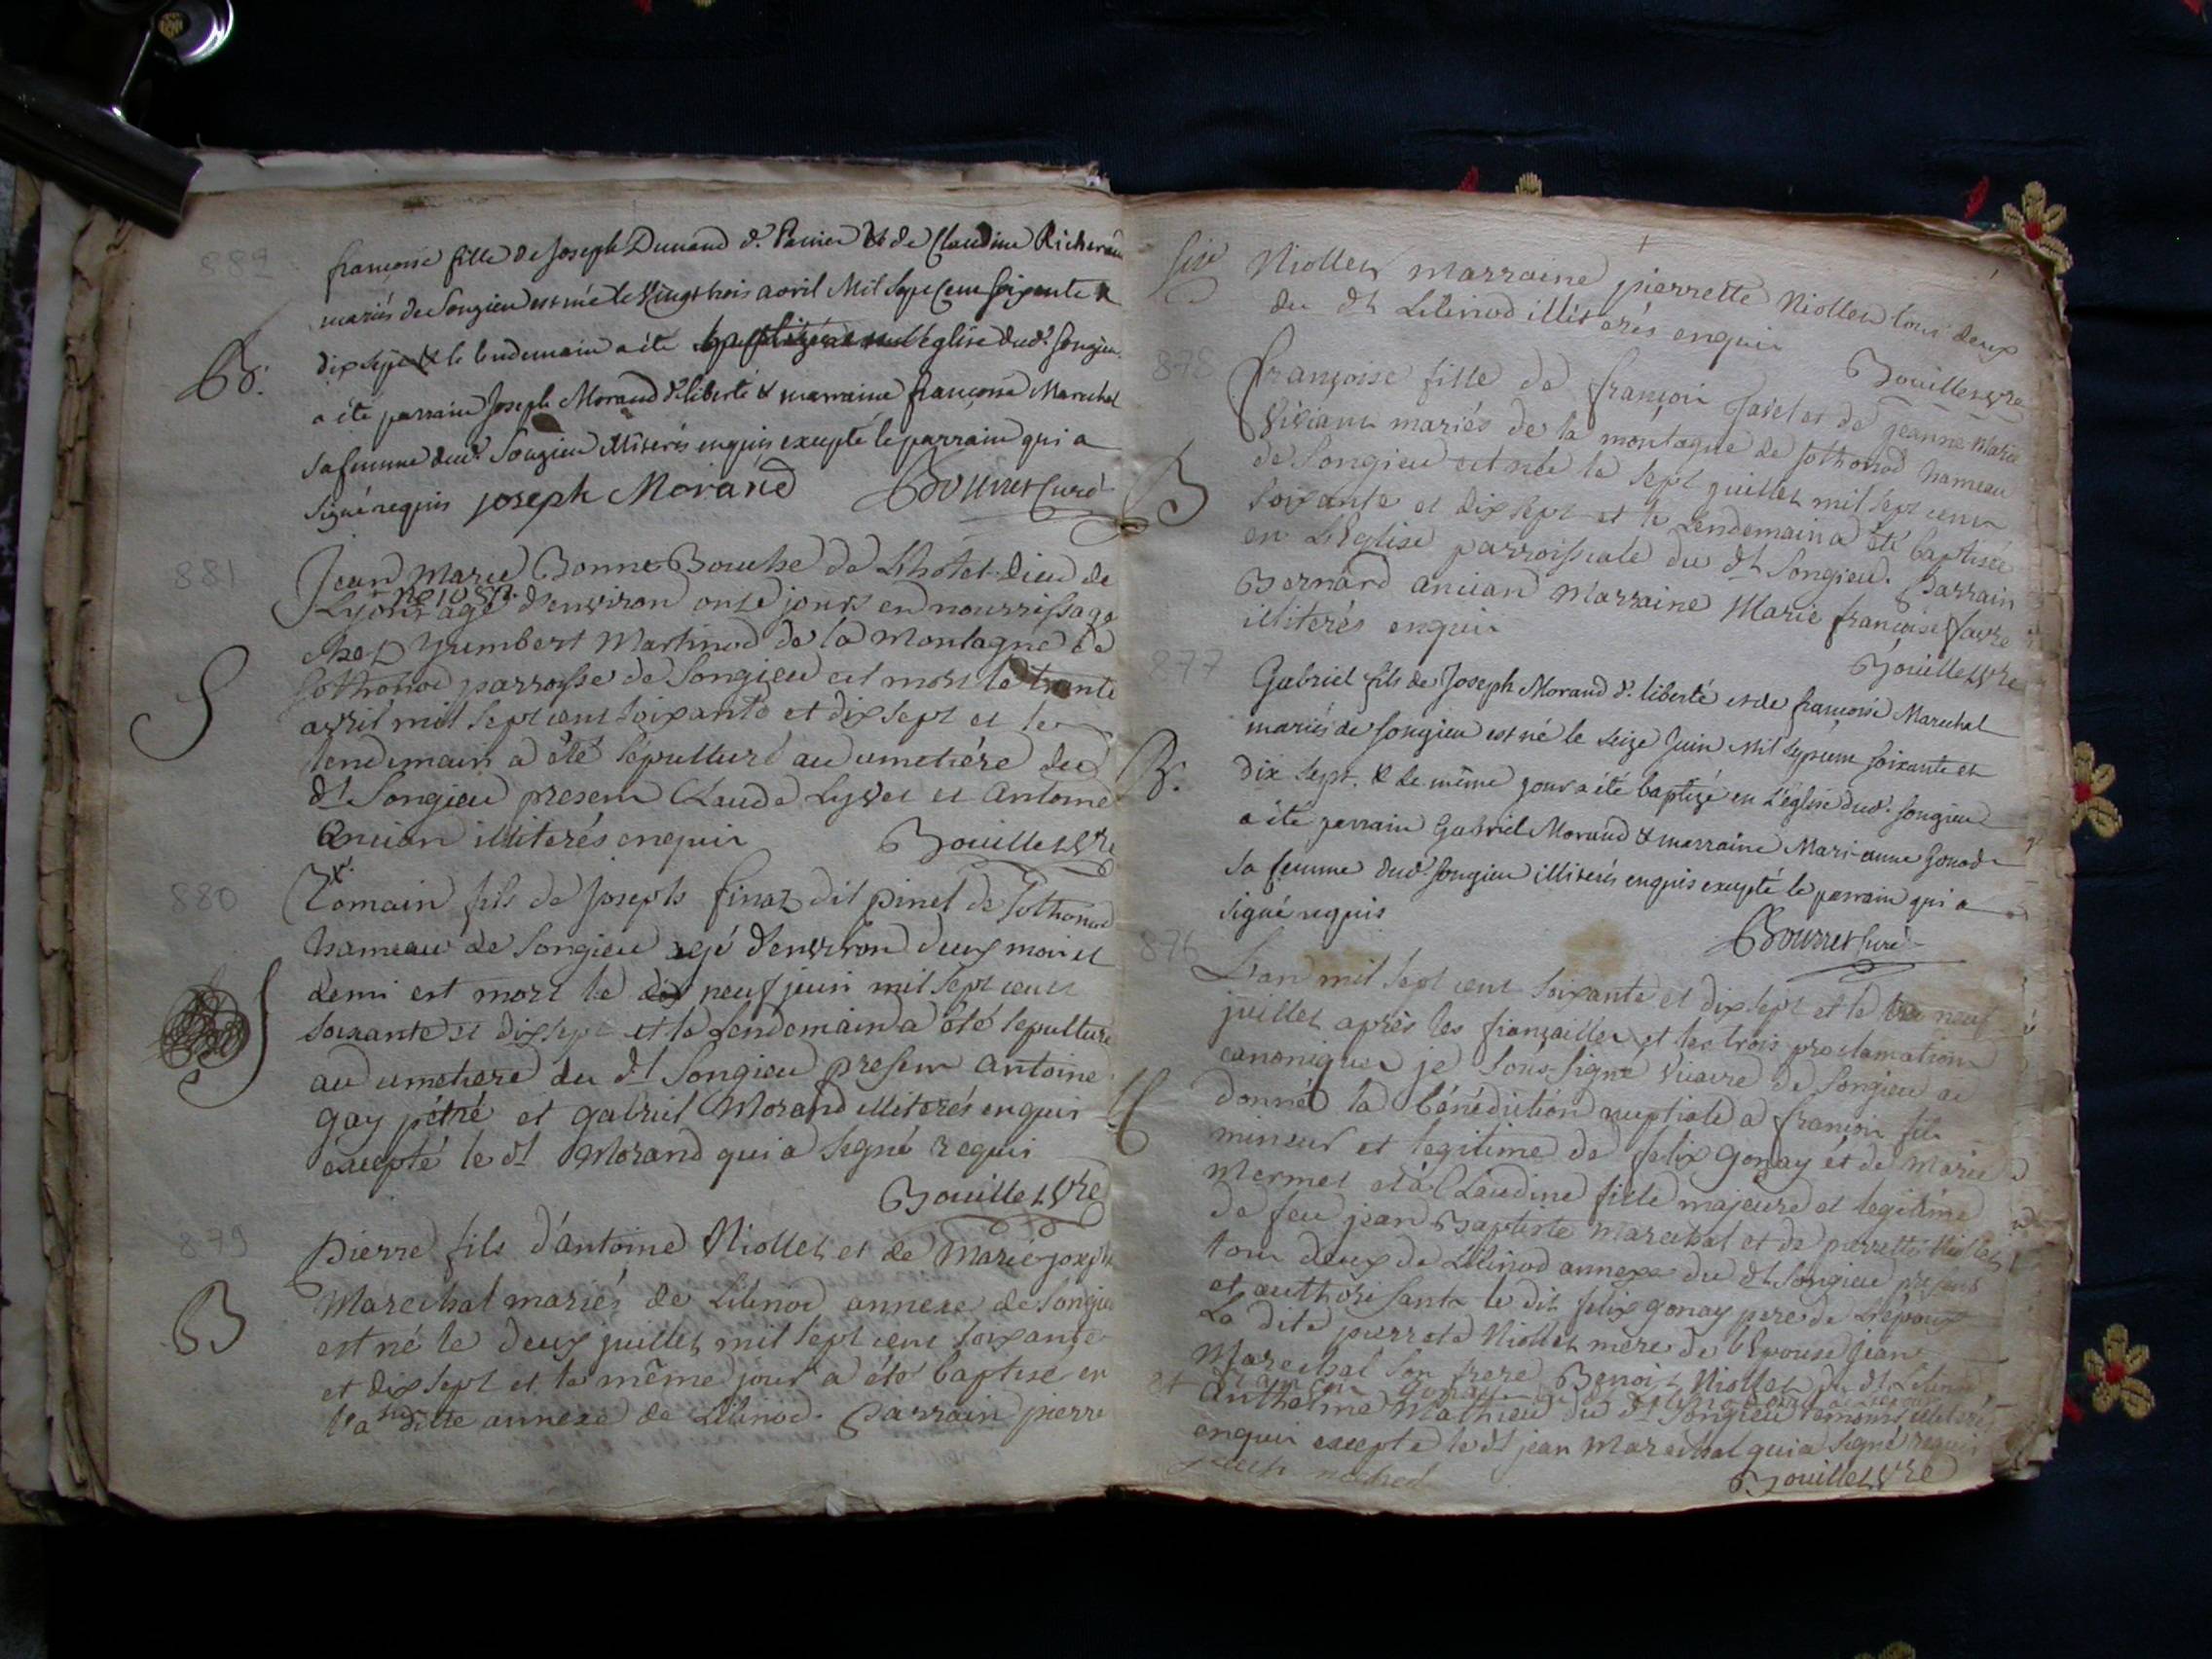 882
françoise fille de Joseph Dunand d. Panier & de Claudine Richerau
mariés de Songieu est née le vingt trois avril Mil Sept Cent soixante &
dix sept & le lendemain a été baptizée en l'église dud. Songieu.
B.
a été parrain Joseph Morand d. liberté & marraine françoise Marechal
sa femme dud. Songieu illiterés enquis excepté le parrain qui a
signé requis joseph Morand Bourret Curé
881
Jean Marie Bonne Bouche de L'hotel-Dieu de
Lyon agé d'environ onze jours en nourrissage
chez humbert Martinod de la Montagne de
Sothonod parroisse de Songieu est mort le trente
S
avril mil sept cent soixante et dix sept et le
lendemain a été sépulturé au cimetiére du
dt Songieu presens Claude Lyvet et antoine
ancian illiterés enquis Bouillet vre
880
Romain fils de Joseph finaz dit pinet de Sothonod
hameau de Songieu agé d'environ deux mois et
demi est mort le dix neuf juin mil sept cent
S
soixante et dix sept et le lendemain a été sepulturé
au cimetiere du dt Songieu presens antoine
gay pétré et gabriel Morand illiterés enquis
excepté le dt Morand qui a signé requis
Bouillet vre
879
Pierre fils d'antoine Niollet et de Marie joseph
Marechal mariés de Lilinod annexe de Songieu
B
est né le deux juillet mil sept cent soixante
et dix sept et le même jour a été baptisé en
la susditte annexe de Lilinod. Parrain pierre
Niollet marraine pierrette Niollet tous deux
du dt Lilinod illiterés enquis
Bouillet vre
878
françoise fille de françois Javel et de jeanne Marie
Viviant mariés de la montagne de Sothonod hameau
de Songieu est née le sept juillet mil sept cent
B
soixante et dix sept et le Lendemain a été baptisée
en L'Eglise parroissiale du dt Songieu. Parrain
Bernard ancian Marraine Marie françoise favre
illiterés enquis
Bouillet vre
877
Gabriel fils de Joseph Morand d. liberté et de françoise Marechal
mariés de songieu est né le seize Juin Mil sept cent soixante et
B.
dix sept. & le même jour a été baptizé en l'église dud. songieu
a été parrain Gabriel Morand & marraine Mari-anne Gonod
sa femme dud. songieu illiterés enquis excepté le parrain qui a
signé requis
Bourret Curé
876
L'an mil sept cent soixante et dix sept et le neuf
juillet après les fiançailles et les trois proclamations
canoniques je sous-signé vicaire de Songieu ai
donné la bénédiction nuptiale a françois fils
mineur et legitime de felix gonay et de Marie
Mermet et à Claudine fille majeure et legitime
de feu jean Baptiste Marechal et de pierrette Niollet
tous deux de Lilinod annexe du dt Songieu presens
et authorisants le dit felix gonay pere de L'époux
La dite pierrete Niollet mere de l'Epouse jean
Marechal son frere Benoit Niollet du dt Lilinod
et anthelme Mathieu du dt Songieu temoins illiterés
enquis excepté le dt jean Marechal qui a signé requis
Bouillet vre